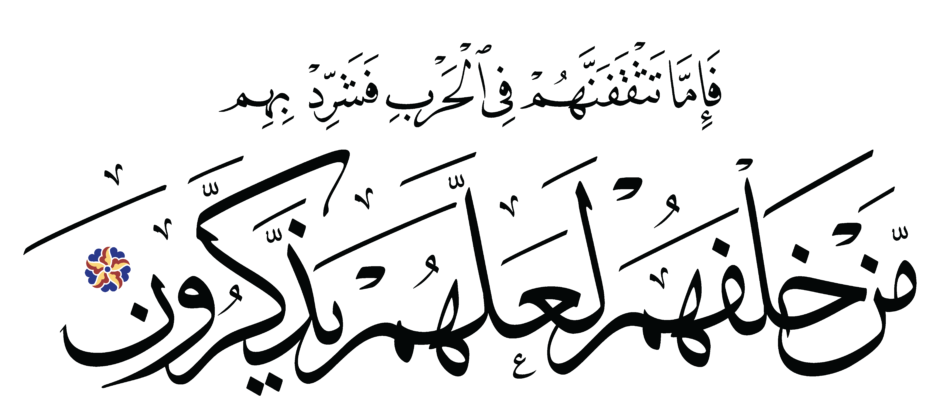 فَإِمَّا تَثْقَفَنَّهُمْ فِى ٱلْحَرْبِ فَشَرِّدْ بِهِم
مَّنْ خَلْفَهُمْ لَعَلَّهُمْ يَذَّكَّرُونَ